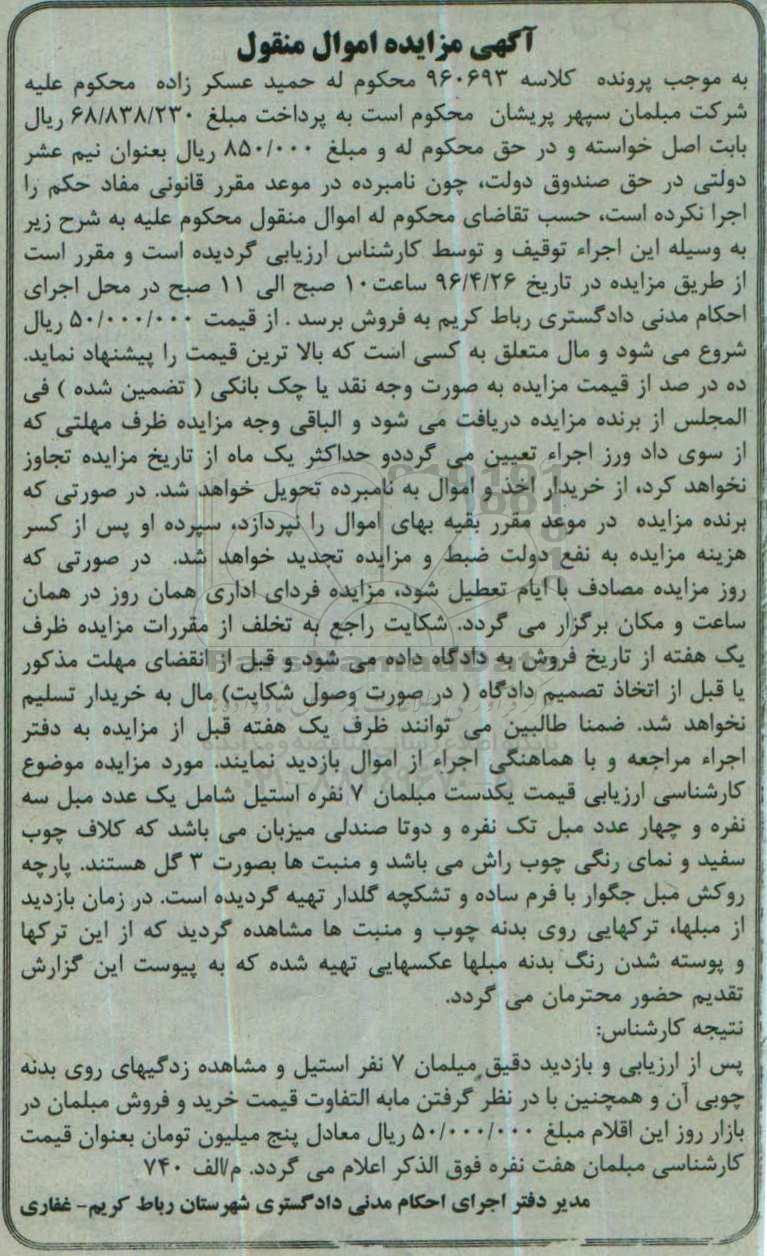 آگهی مزایده اموال منقول
به موجب پرونده کلاسه ۹۶۰۶۹۳ محکوم له حمید عسکر زاده محکوم علیه
شرکت مبلمان سپهر پریشان محکوم است به پرداخت مبلغ ۶۸/۸۳۸/۲۳۰ ریال
بابت اصل خواسته و در حق محکوم له و مبلغ ۸۵۰/۰۰۰ ریال بعنوان نیم عشر
دولتی در حق صندوق دولت، چون نامبرده در موعد مقرر قانونی مفاد حکم را
اجرا نکرده است، حسب تقاضای محکوم له اموال منقول محکوم علیه به شرح زیر
به وسیله این اجراء توقیف و توسط کارشناس ارزیابی گردیده است و مقرر است
از طریق مزایده در تاریخ ۹۶/۴/۲۶ ساعت۱۰ صبح الی ۱۱ صبح در محل اجرای
احکام مدنی دادگستری رباط کریم به فروش برسد . از قیمت ۵۰/۰۰۰/۰۰۰ ریال
شروع می شود و مال متعلق به کسی است که بالا ترین قیمت را پیشنهاد نماید.
ده در صد از قیمت مزایده به صورت وجه نقد یا چک بانکی ( تضمین شده ) فی
المجلس از برنده مزایده دریافت می شود و الباقی وجه مزایده ظرف مهلتی که
از سوی داد ورز اجراء تعیین می گرددو حداکثر یک ماه از تاریخ مزایده تجاوز
نخواهد کرد، از خریدار اخذ و اموال به نامبرده تحویل خواهد شد. در صورتی که
برنده مزایده در موعد مقرر بقیه بهای اموال را نپردازد، سپرده او پس از کسر
هزینه مزایده به نفع دولت ضبط و مزایده تجدید خواهد شد. در صورتی که
روز مزایده مصادف با ایام تعطیل شود، مزایده فردای اداری همان روز در همان
ساعت و مکان برگزار می گردد. شکایت راجع به تخلف از مقررات مزایده ظرف
یک هفته از تاریخ فروش به دادگاه داده می شود و قبل از انقضای مهلت مذکور
یا قبل از اتخاذ تصمیم دادگاه ( در صورت وصول شکایت) مال به خریدار تسلیم
نخواهد شد. ضمنا طالبین می توانند ظرف یک هفته قبل از مزایده به دفتر
اجراء مراجعه و با هماهنگی اجراء از اموال بازدید نمایند. مورد مزایده موضوع
کارشناسی ارزیابی قیمت یکدست مبلمان ۷ نفره استیل شامل یک عدد مبل سه
نفره و چهار عدد مبل تک نفره و دوتا صندلی میزبان می باشد که کلاف چوب
سفید و نمای رنگی چوب راش می باشد و منبت ها بصورت ۳ گل هستند. پارچه
روکش مبل جگوار با فرم ساده و تشکچه گلدار تهیه گردیده است. در زمان بازدید
از مبلها، ترکهایی روی بدنه چوب و منبت ها مشاهده گردید که از این ترکها
و پوسته شدن رنگ بدنه مبلها عکسهایی تهیه شده که به پیوست این گزارش
تقدیم حضور محترمان می گردد.
نتیجه کارشناس:
پس از ارزیابی و بازدید دقیق میلمان ۷ نفر استیل و مشاهده زدگیهای روی بدنه
چوبی آن و همچنین با در نظر گرفتن مابه التفاوت قیمت خرید و فروش مبلمان در
بازار روز این اقلام مبلغ ۵۰/۰۰۰/۰۰۰ ریال معادل پنج میلیون تومان بعنوان قیمت
کارشناسی مبلمان هفت نفره فوق الذکر اعلام می گردد. م/الف ۷۴۰
مدیر دفتر اجرای احکام مدنی دادگستری شهرستان رباط کریم- غفاری